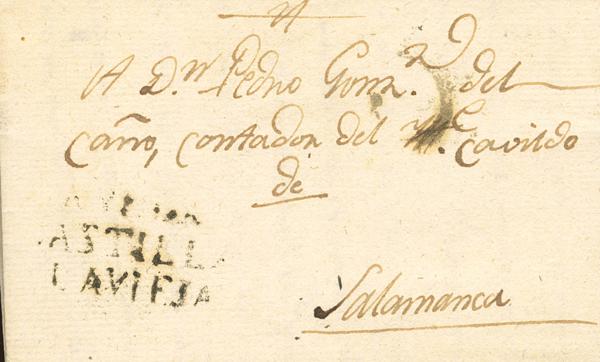 A D.n Pedro Gonz.z del
Caño, Contador del Y.e Cavildo
de
Salamanca
ASTILL
LAVIEJA